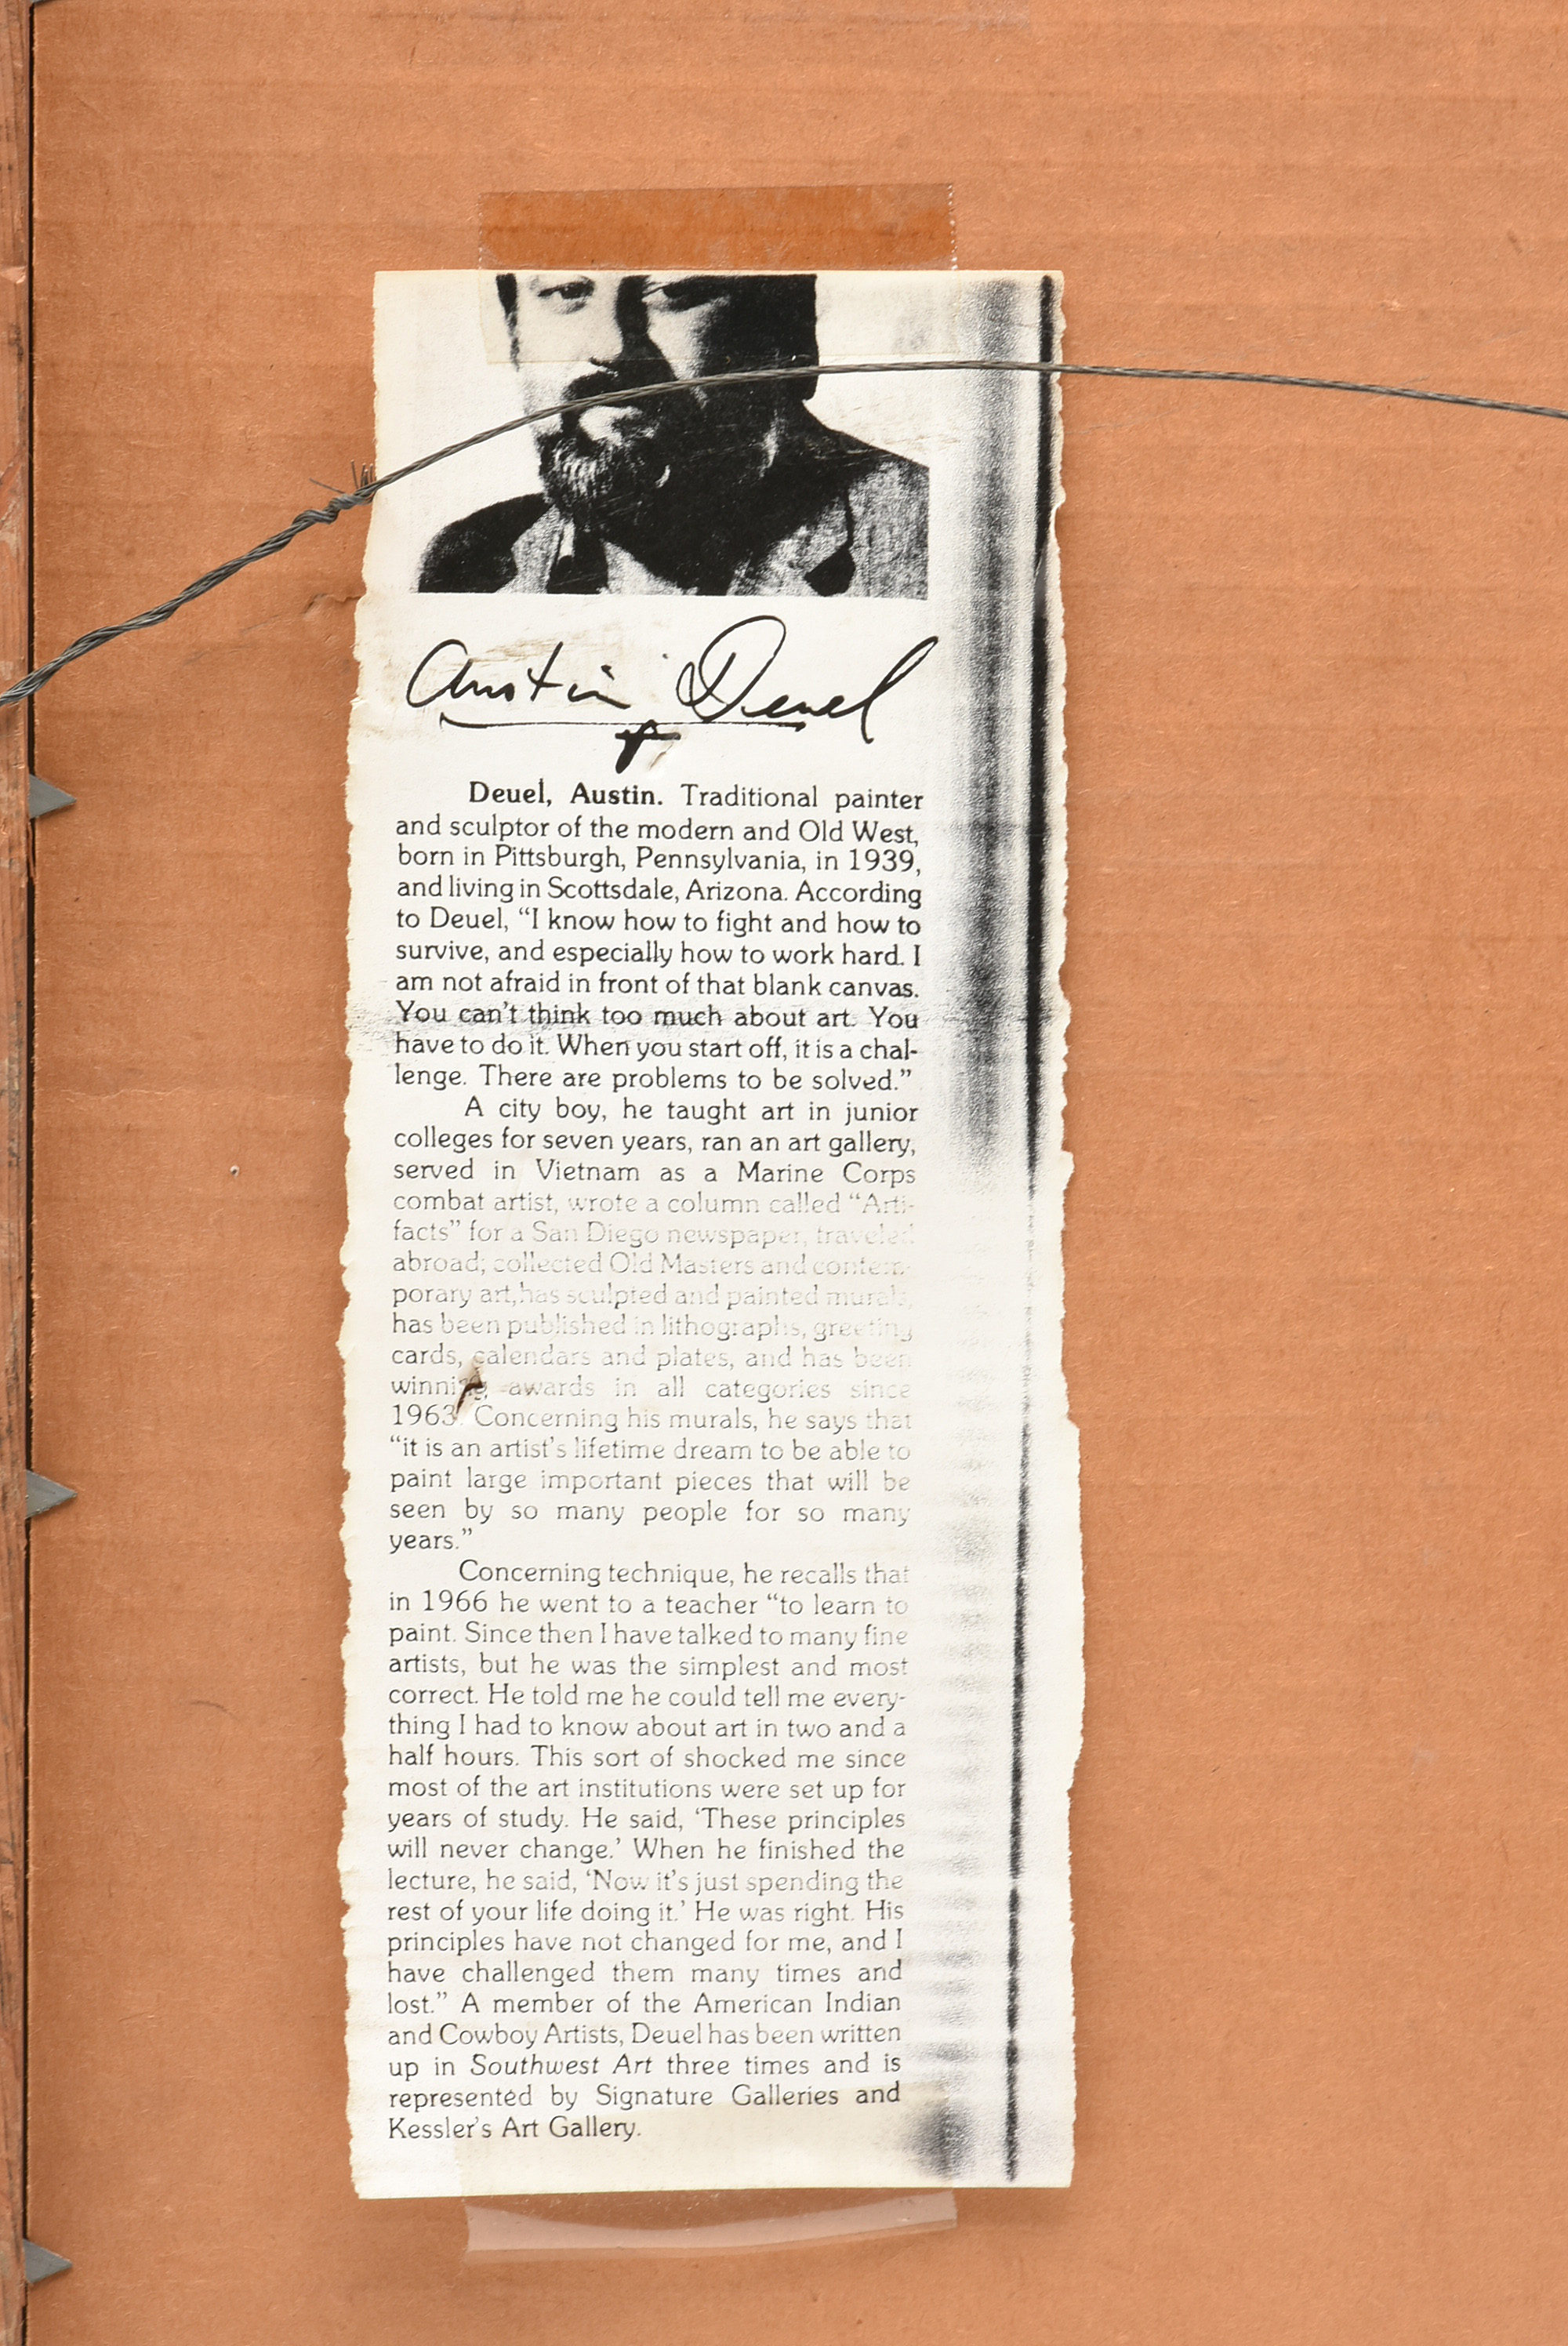 Austin Deuel
Deuel, Austin. Traditional painter
and sculptor of the modern and Old West,
born in Pittsburgh, Pennsylvania, in 1939,
and living in Scottsdale, Arizona. According
to Deuel, “I know how to fight and how to
survive, and especially how to work hard. I
am not afraid in front of that blank canvas.
You can’t think too much about art. You
have to do it. When you start off, it is a chal-
lenge. There are problems to be solved.”
A city boy, he taught art in junior
colleges for seven years, ran an art gallery,
served in Vietnam as a Marine Corps
combat artist, wrote a column called “Arti-
facts” for a San Diego newspaper, traveled
abroad; collected Old Masters and contem-
porary art, has sculpted and painted murals,
has been published in lithographs, greeting
cards, calendars and plates, and has been
winning awards in all categories since
1963. Concerning his murals, he says that
“it is an artist’s lifetime dream to be able to
paint large important pieces that will be
seen by so many people for so many
years.”
Concerning technique, he recalls that
in 1966 he went to a teacher “to learn to
paint. Since then I have talked to many fine
artists, but he was the simplest and most
correct. He told me he could tell me every-
thing I had to know about art in two and a
half hours. This sort of shocked me since
most of the art institutions were set up for
years of study. He said, ‘These principles
will never change.’ When he finished the
lecture, he said, ‘Now it’s just spending the
rest of your life doing it.’ He was right. His
principles have not changed for me, and I
have challenged them many times and
lost.” A member of the American Indian
and Cowboy Artists, Deuel has been written
up in Southwest Art three times and is
represented by Signature Galleries and
Kessler’s Art Gallery.